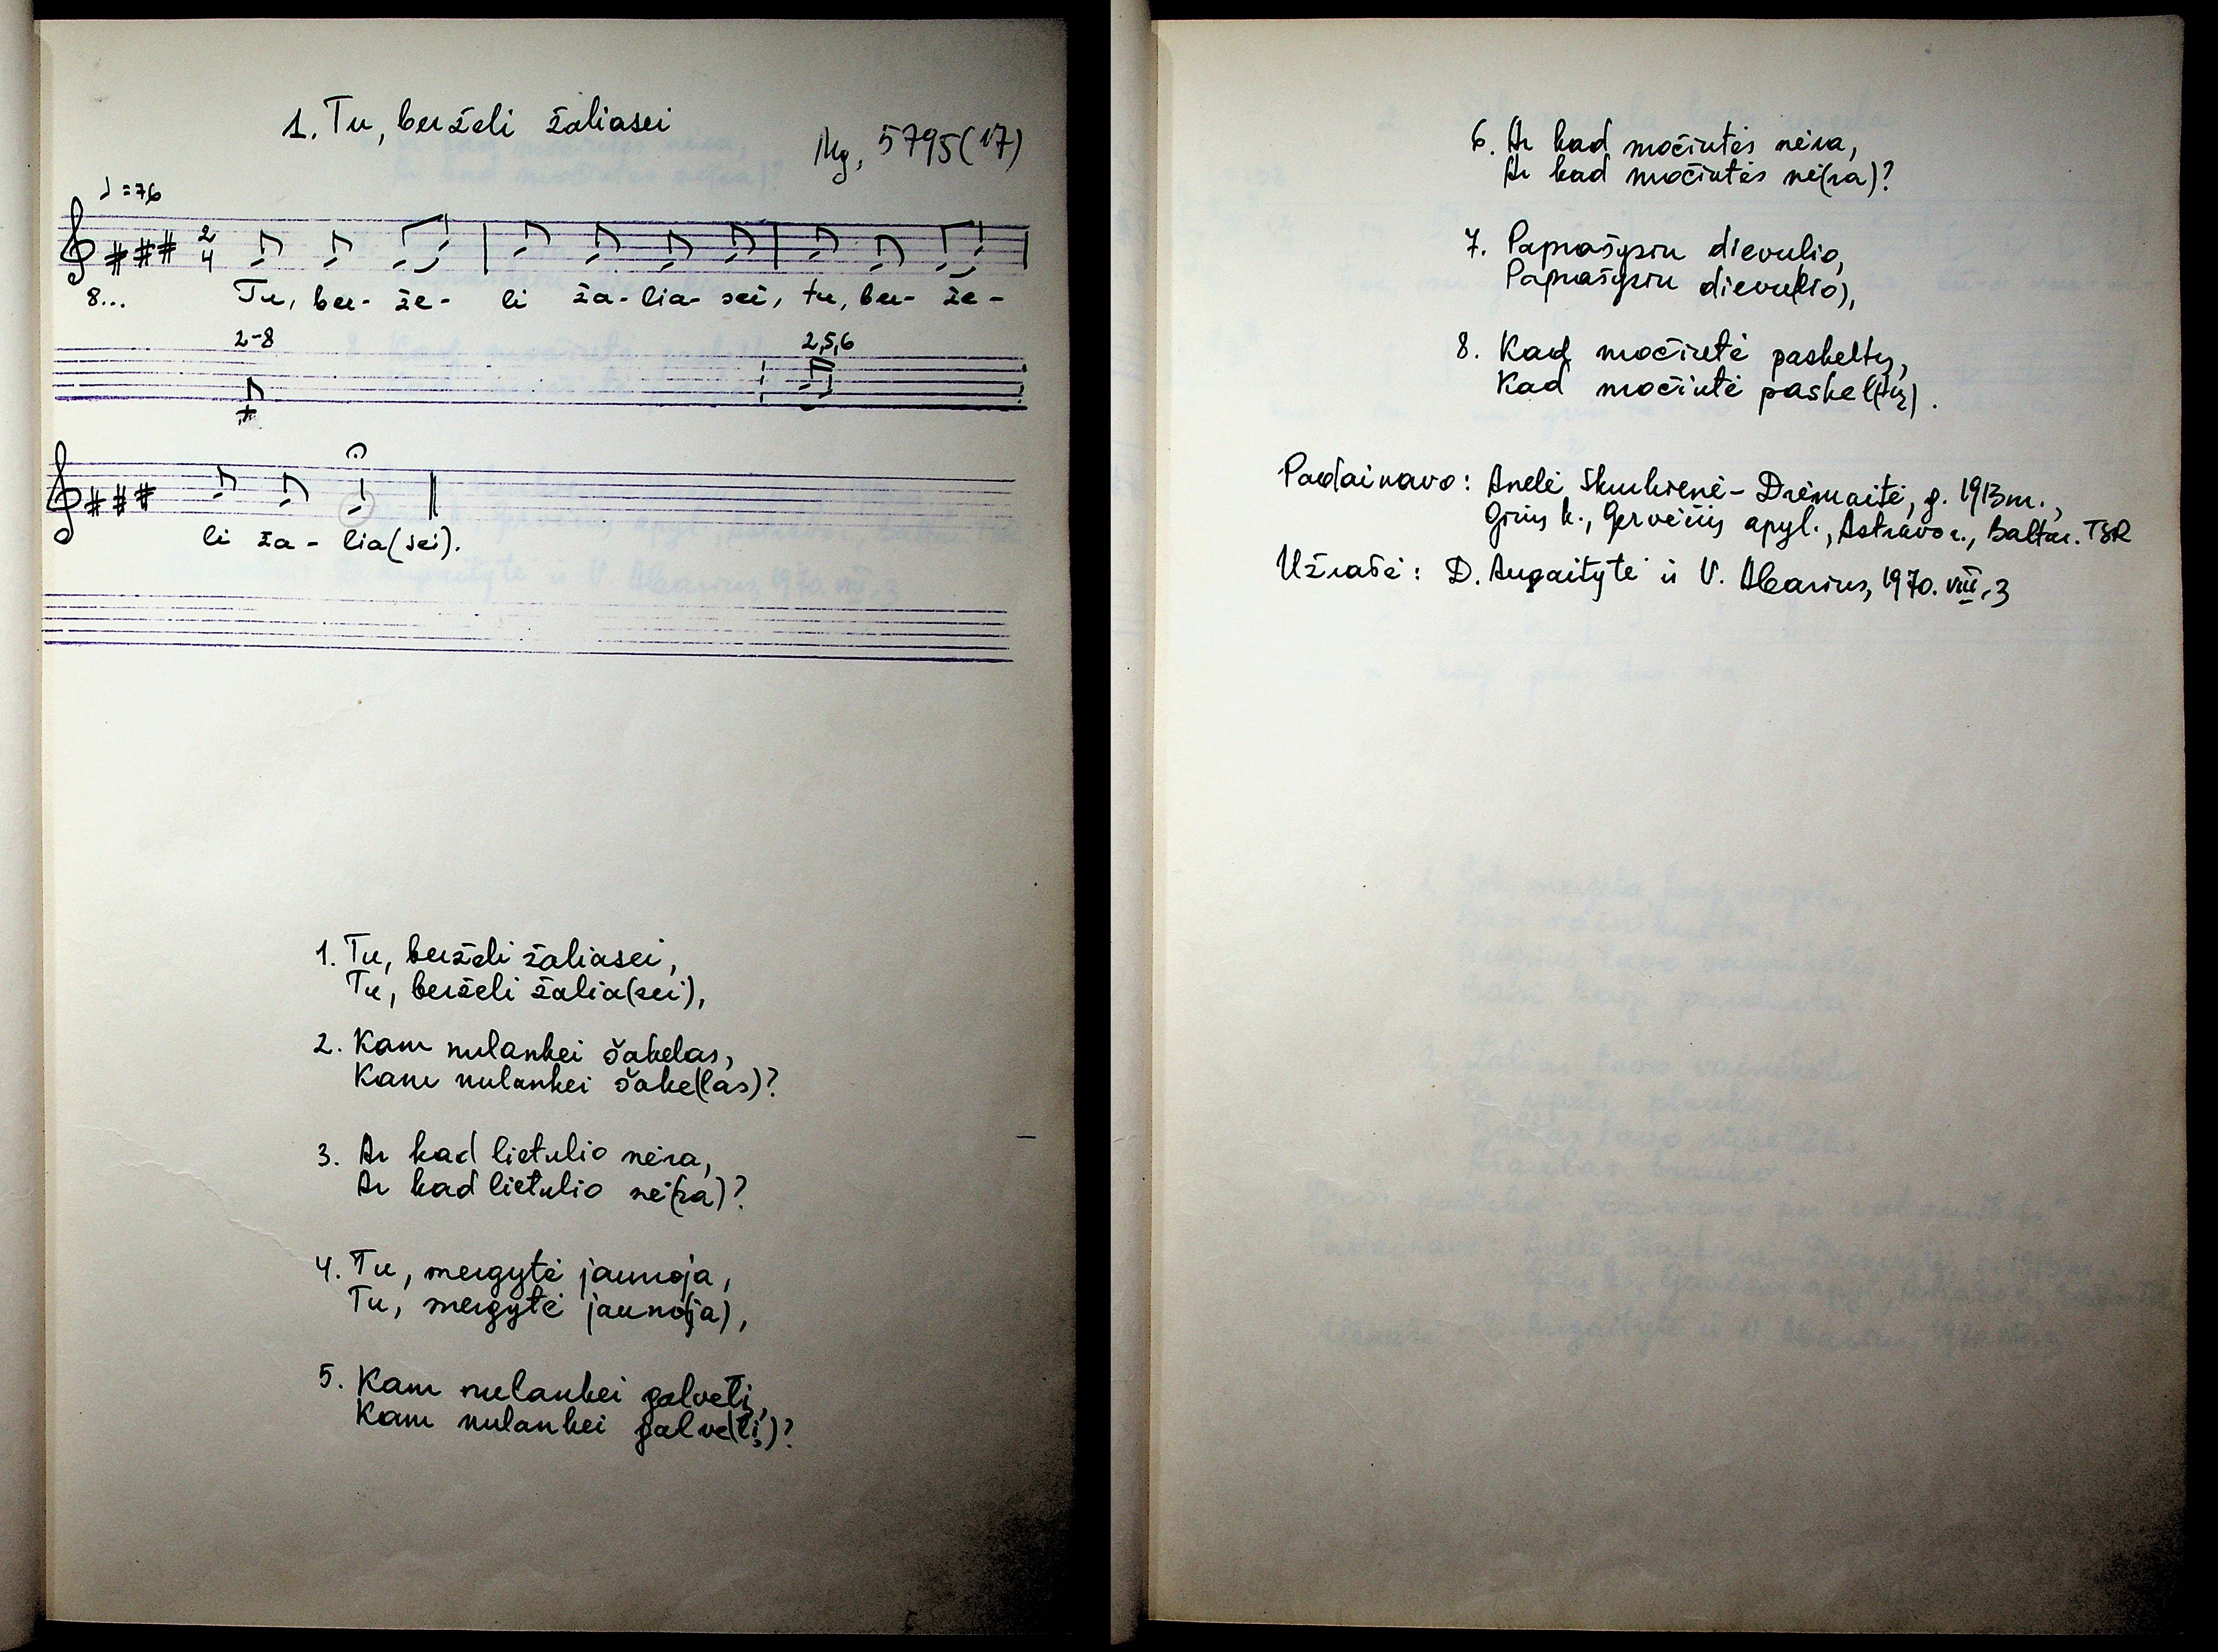 1. Tu, berželi žaliasei
Mg, 5795(17)
♩=76
2
4
8... Tu, ber- že- li ža-lia- sei, tu, ber- že-
2-8 2,5,6
li ža- lia(sei).
1. Tu, berželi žaliasei,
Tu, berželi žalia(sei),
2. Kam nulankei šakelas,
Kam nulankei šake(las)?
3. Ar kad lietulio nėra,
Ar kad lietulio nė(ra)?
4. Tu, mergytė jaunoja,
Tu, mergytė jauno(ja),
5. Kam nulankei galvelį,
Kam nulankei galve(lį)?
6. Ar kad močiutės nėra,
Ar kad močiutės nė(ra)?
7. Paprašysiu dievulio,
Paprašysiu dievu(lio),
8. Kad močiutė paskeltų,
Kad močiutė paskel(tų).
Padainavo: Anelė Skurkienė-Drėmaitė, g. 1913m.,
Girių k., Gervėčių apyl., Astravo r., Baltar. TSR
Užrašė: D. Augaitytė ir V. Abarius, 1970.VIII.3